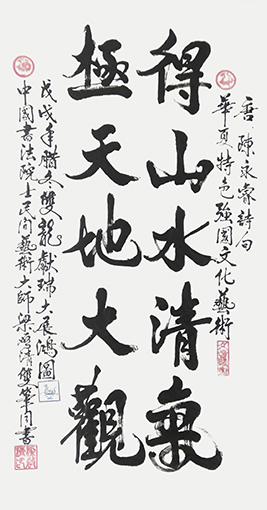 唐 陳永詩句
華夏特色強國文化藝術
得山水清氣
極天地大觀
戊戌年冬雙龍獻瑞大展鴻圖
中國書法院士民間藝術大師梁清雙筆同書